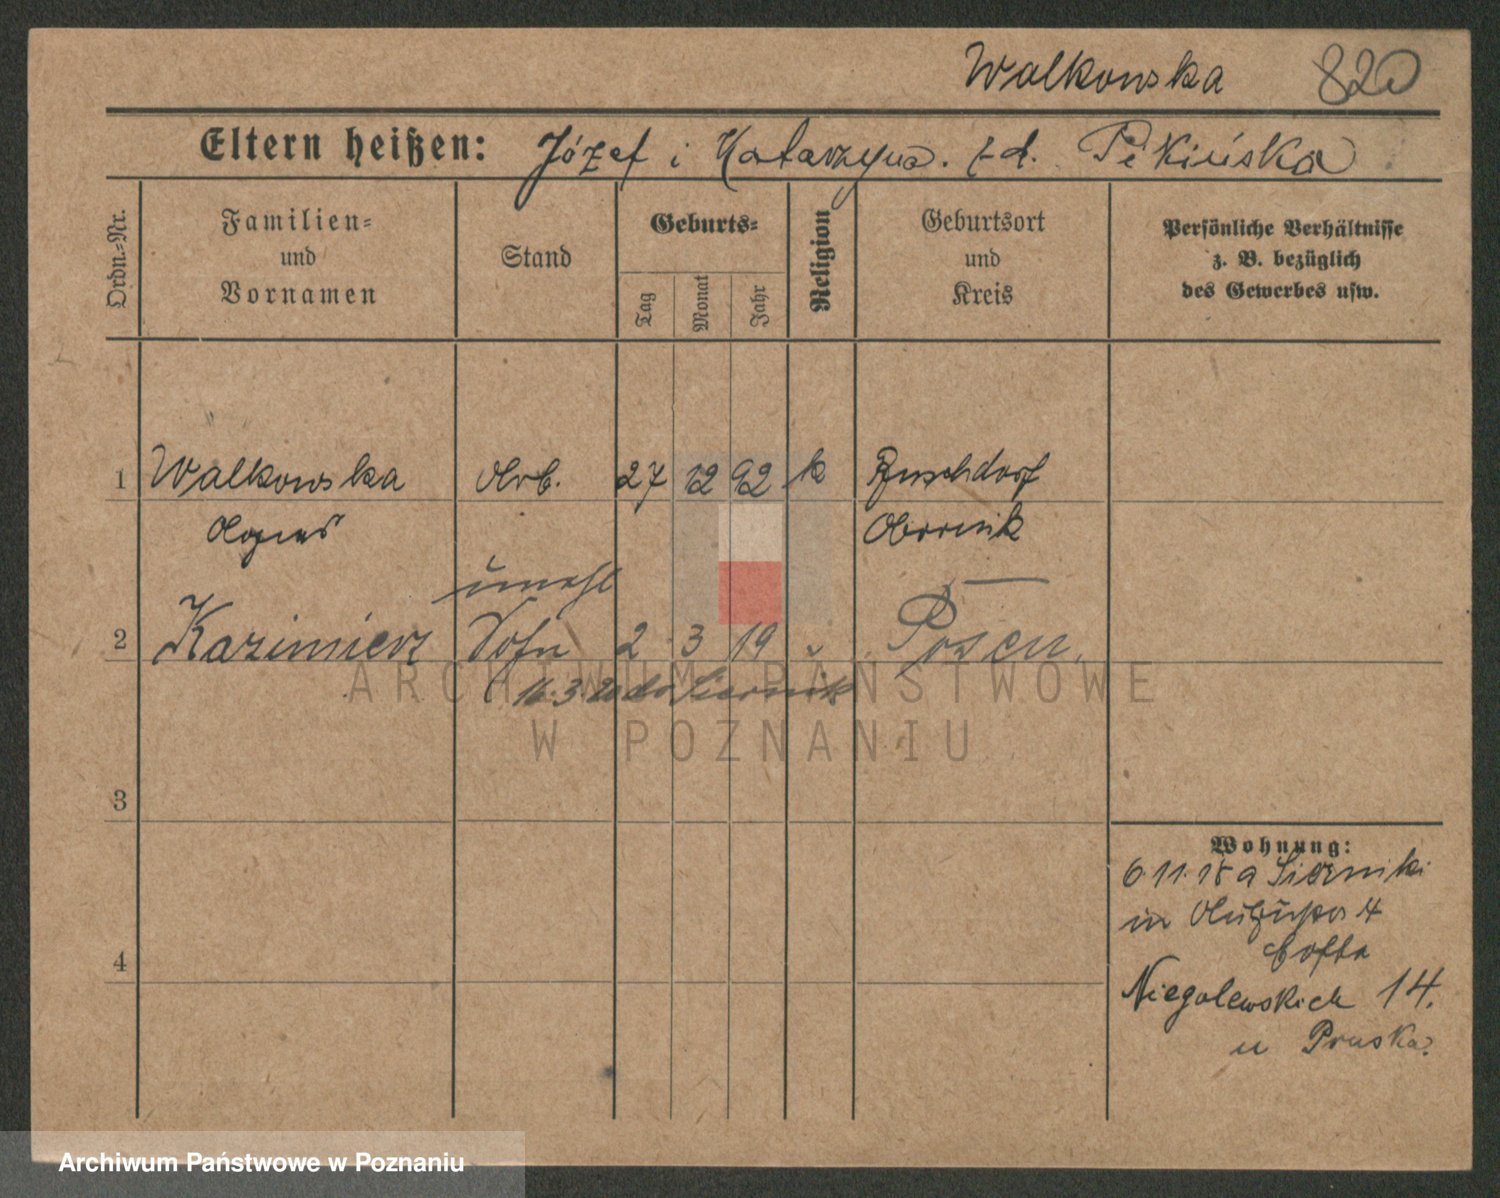 Walkowska 820
Eltern heißen: Józef i Katarzyna. z d. Pekińska
Ordn.-Nr.
Familien-
und
Vornamen
Stand
Geburts-
Tag
Monat
Jahr
Religion
Geburtsort
und
Kreis
Persönliche Verhältnisse
z. B. bezüglich
des Gewerbes usw.
1 Walkowska Arb. 27 12 92 k Buschdorf
Agnes Obornik
unehl
2 Kazimierz Sohn 2 3 19 Posen.
16.3.20
ARCHIWUM PAŃSTWOWE
W POZNANIU
3
4
Wohnung:
6.11.18 a
in 4
Niegolewskich 14.
u Pruska
Archiwum Państwowe w Poznaniu